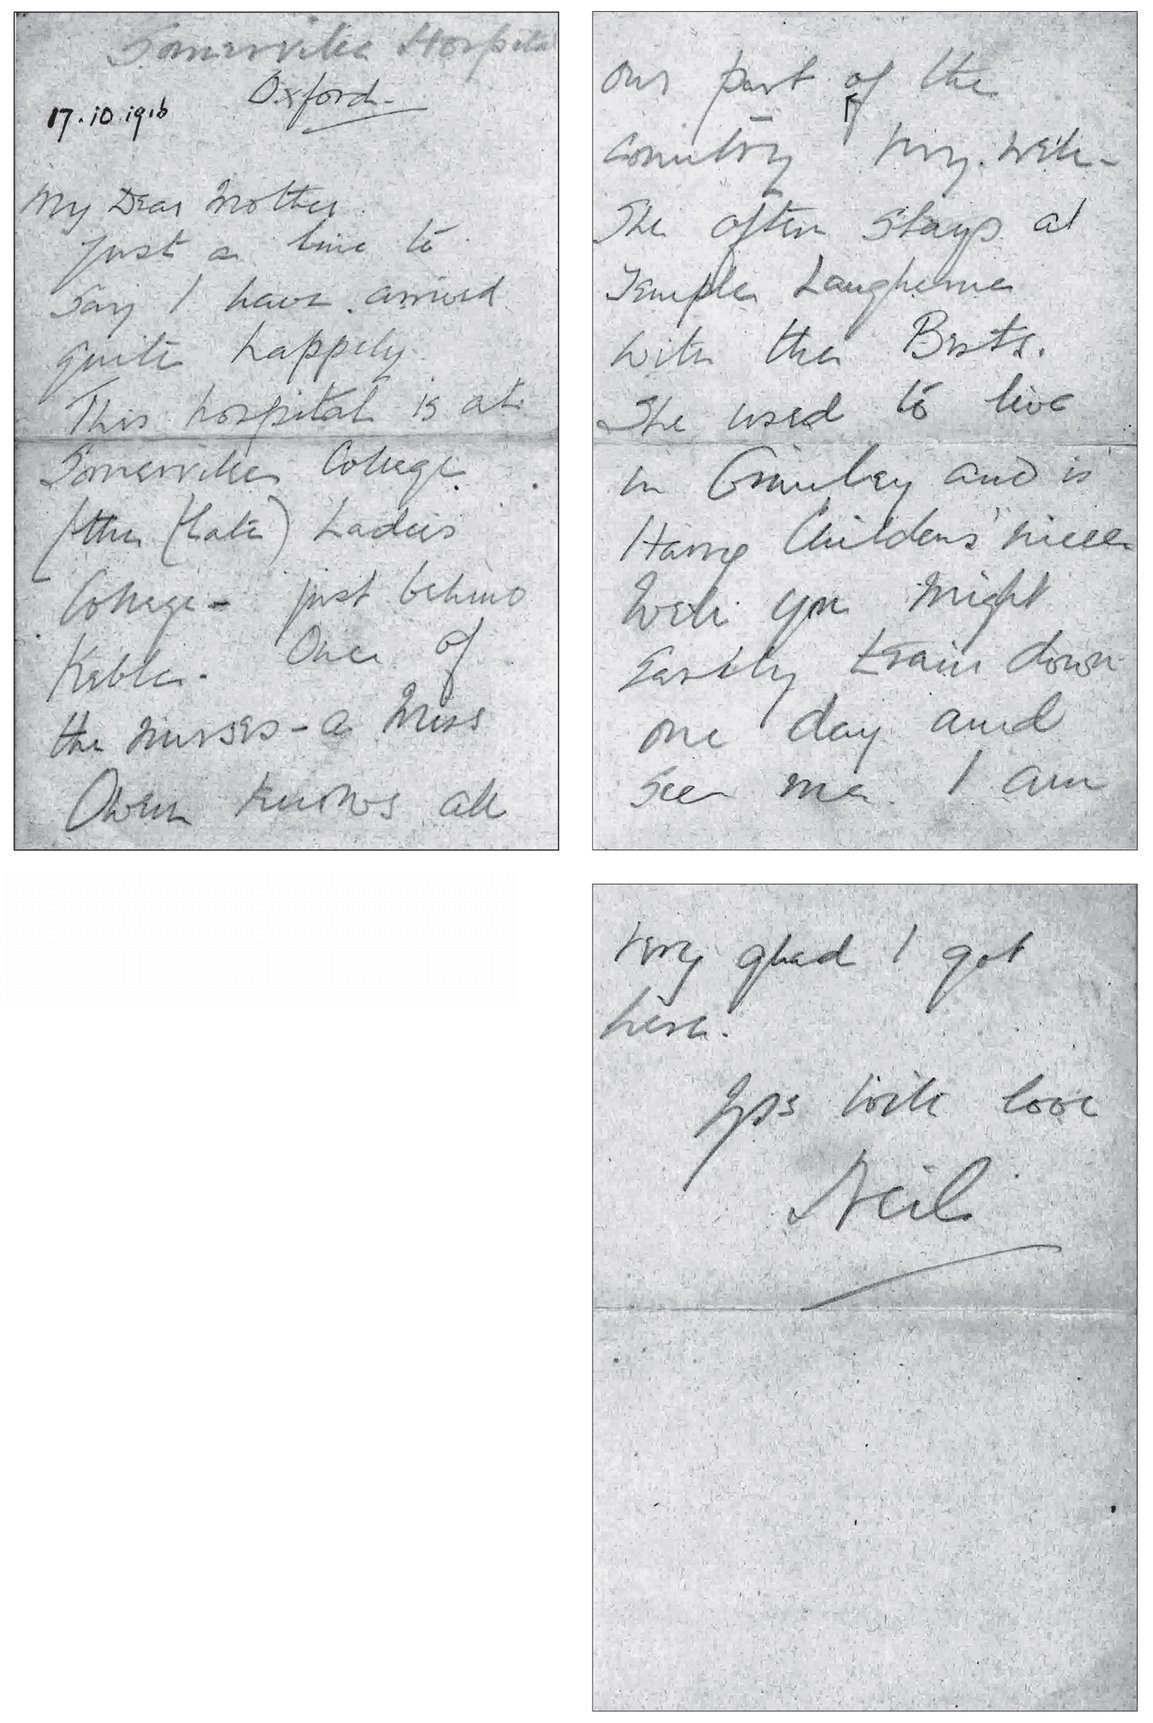 Somerville Hospital
Oxford.
17.10.1916
My Dear Mother.
Just a line to
say I have arrived
quite happily.
This hospital is at
Somerville College.
(the (late) Ladies
College - just behind
Keble. One of
the nurses - a Miss
Owen knows all
our part of the
country very. well -
She often stays at
Temple Laugherne
with the Britts.
She used to live
in Grimley and is
Harry Childens' niece
Well you might
easily train down
one day and
see me. I am
very glad I got
here.
Yrs with love
Neil